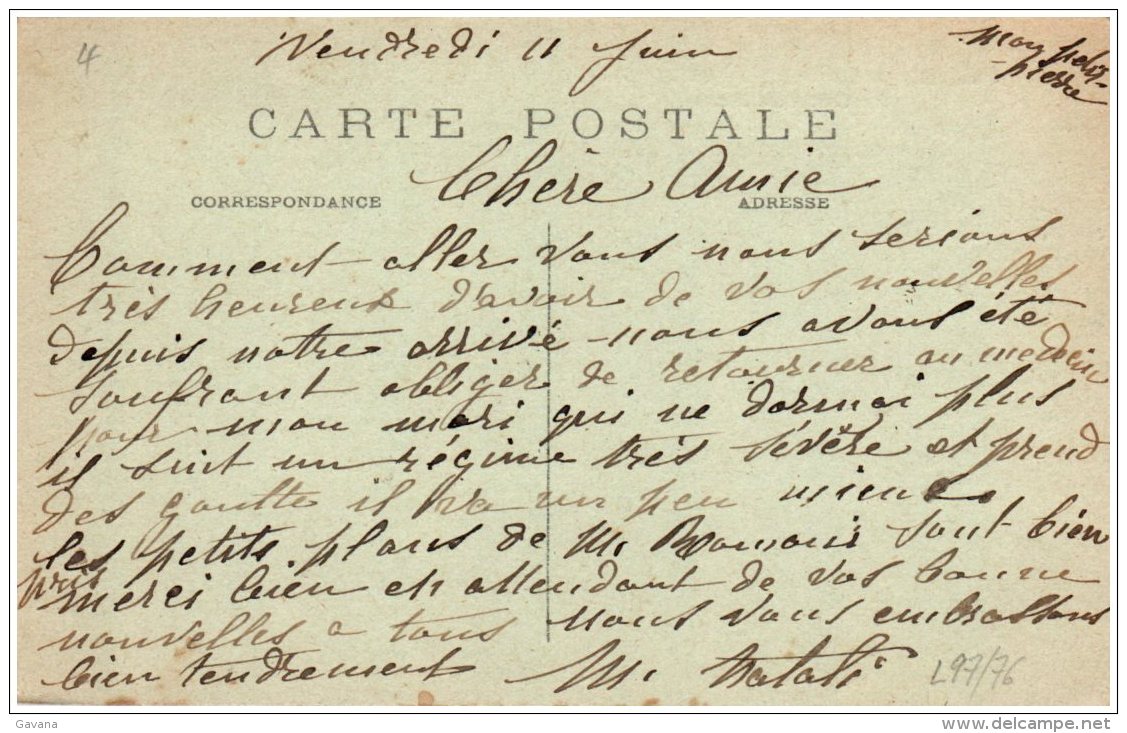 4
Vendredi 11 Juin
mon petit
pierre
CARTE POSTALE
Chère Amie
CORRESPONDANCE
ADRESSE
Comment aller vous nous serions
très heureux d'avoir de vos nouvelles
depuis notre arrivé nous avons été
souffrant obliger de retourner au medecin
pour mon mari qui ne dormai plus
il suit un régime très sévère et prend
des goutte il va un peu mieux
les petits plans de M. Romani sont bien
pris
merci bien en attendant de vos bonne
nouvelles a tous nous vous embrassons
bien tendrement M. Natali
L97/76
Gavana
www.delcampe.net